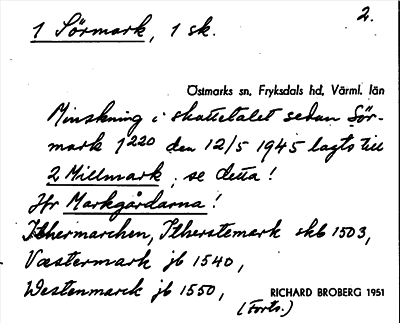 2.
1 Sörmark, 1 sk.
Östmarks sn, Fryksdals hd, Värml. län
Minskning i skattetalet sedan Sör-
mark 1220 den 12/5 1945 lagts till
2 Millmark, se detta!
Jfr Markgårdarna!
Ithermarchen, Itherstemark skb 1503,
Væstermark jb 1540,
Westenmarck jb 1550,
RICHARD BROBERG 1951
(Forts.)